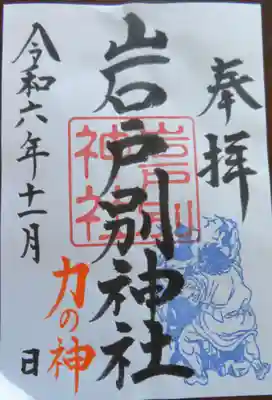 奉拝
岩戸別神社
岩戸別
神社
力の神
令和六年十一月 日